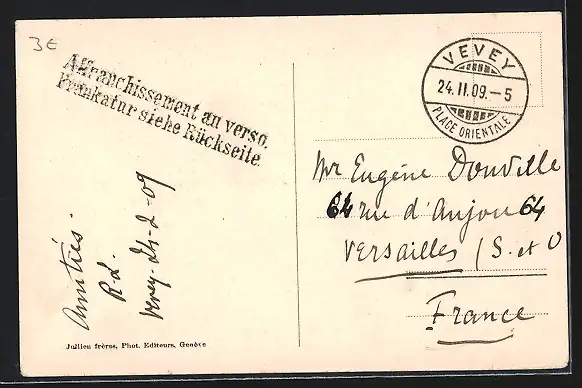 3€
Affranchissement au verso.
Frankatur siehe Rückseite.
VEVEY
24.II.09.-5
PLACE ORIENTALE
Mr Eugène Douville
64 rue d'Anjou 64
Versailles (S. et O
France
Amitiés.
R.L.
Vevey. 24-2-09
Jullien frères, Phot. Editeurs, Genève